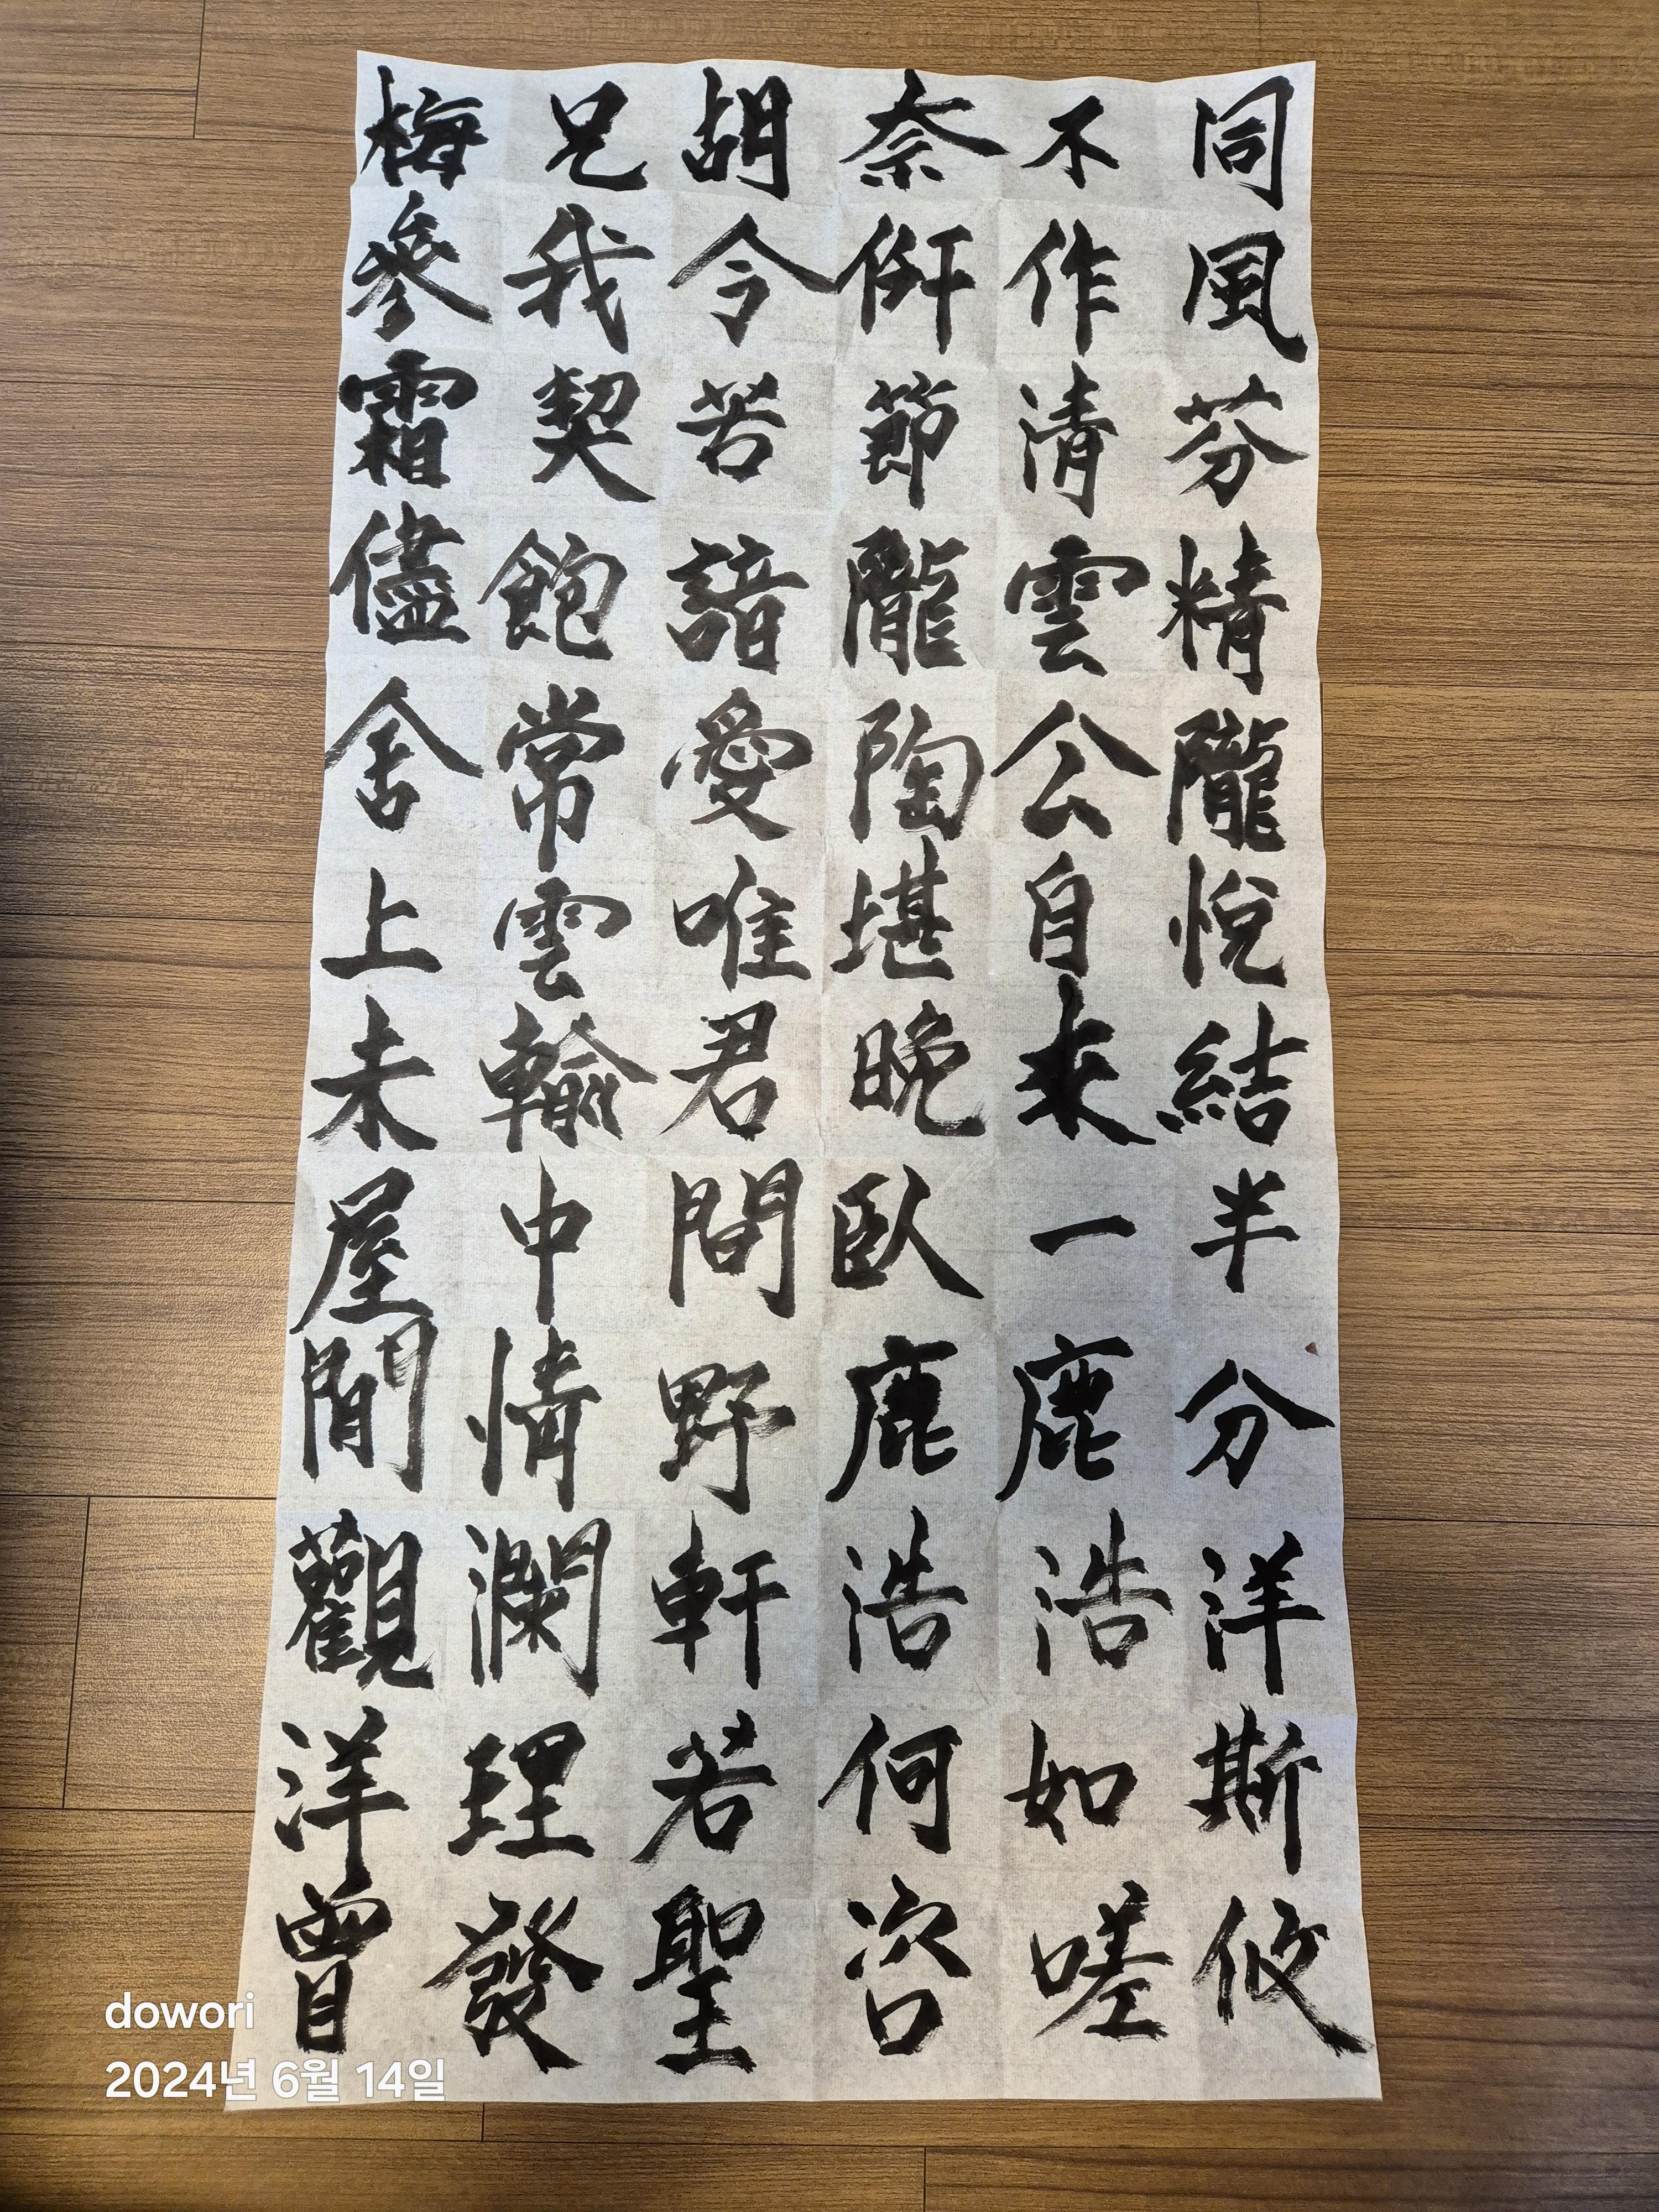 同風芬精隴悅結半分洋斯攸
不作清雲公自來一鹿浩如嗟
奈節隴陶堪晚臥鹿浩何咨
胡令苦諳愛唯君間野軒若聖
兄我契飽常雲輸中情瀾理發
梅參霜儘舍上未屋間觀洋曾
dowori
2024년 6월 14일